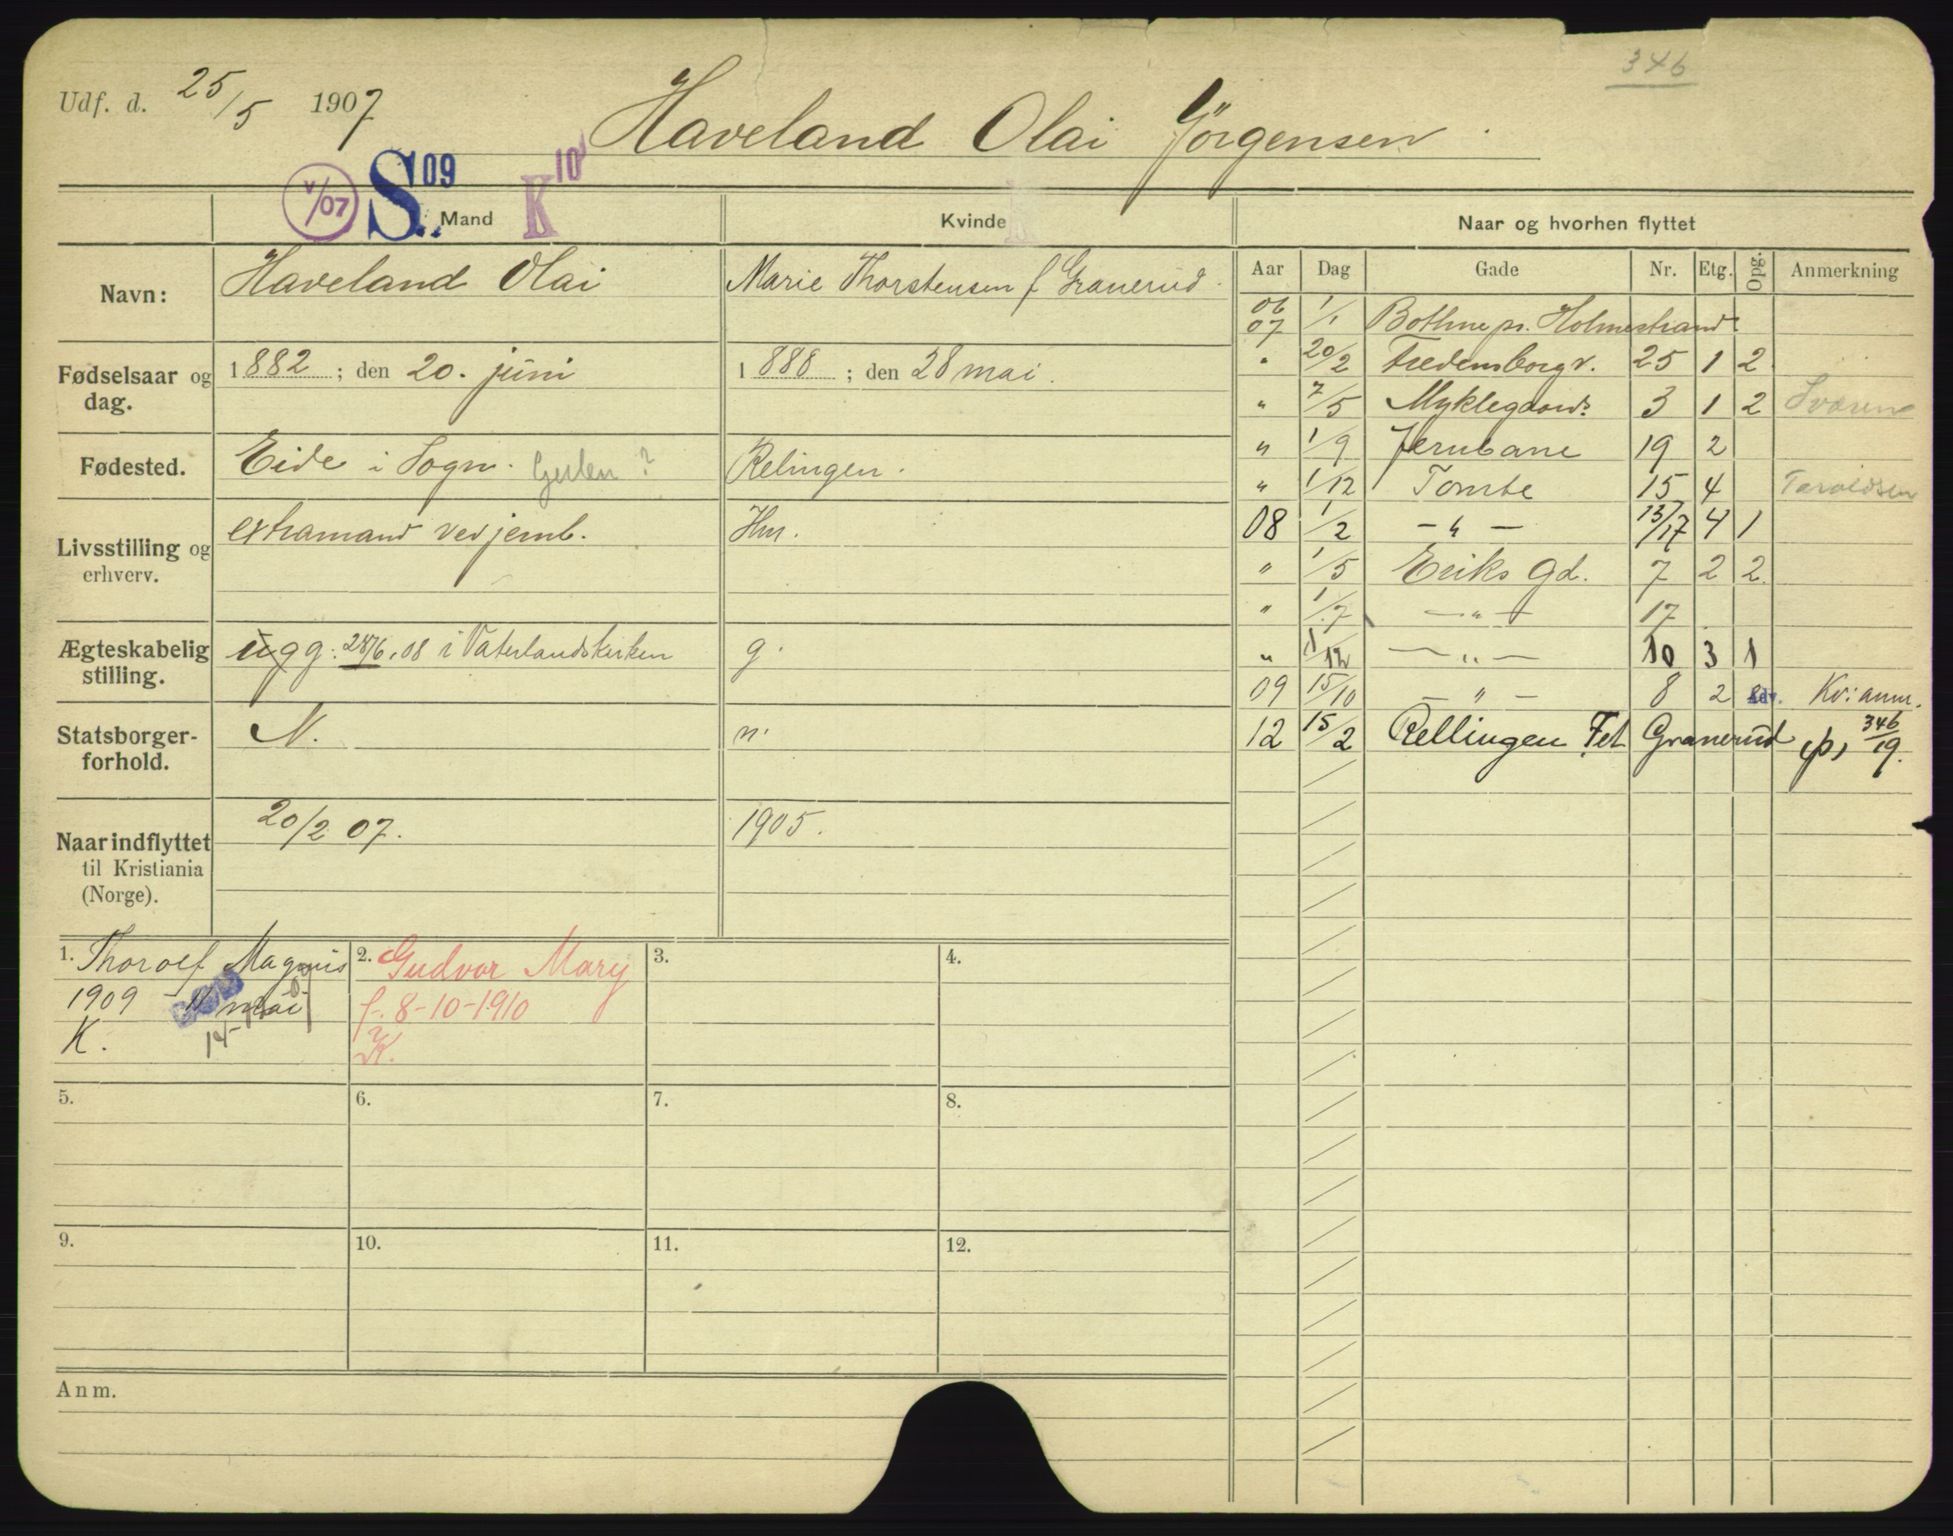 346
Udf. d. 25/5 1907 Haveland Olai Jörgensen
V/07 S. 09 K 10
Mand Kvinde Naar og hvorhen flyttet
Aar Dag Gade Nr. Etg. Opg. Anmerkning
Navn: Haveland Olai Marie Thorstensen f Granerud.
Fødselsaar og dag. 1882 ; den 20. juni 1888 ; den 28 mai.
Fødested. Eide i Sogn. ? Relingen.
Livsstilling og erhverv. extramand ved jernb. Hm.
Ægteskabelig stilling. ug g: 28/6.08 i Vaterlandskirken g.
Statsborger-
forhold. N. n.
Naar indflyttet
til Kristiania
(Norge). 20/2 07. 1905.
06
07 1/1 Bothne pr. Holmestrand
" 20/2 Fredensborgv. 25 1 2
" 7/5 Myklegaards 3 1 2
" 1/9 Jernbane 19 2
" 1/12 Tomte 15 4
08 1/2 — " — 13/17 4 1
" 1/5 Eriks gd. 7 2 2
" 1/7 — " — 17
" 1/12 — " — 10 3 1
09 15/10 — " — 8 2 Kv: anm.
12 15/2 Rellingen Fet Granerud (p) 346/19.
1. Thorolf Magnus
1909 11 mai
K.
2. Gudvor Mary
f. 8-10-1910
K.
3.
4.
5.
6.
7.
8.
9.
10.
11.
12.
Anm.